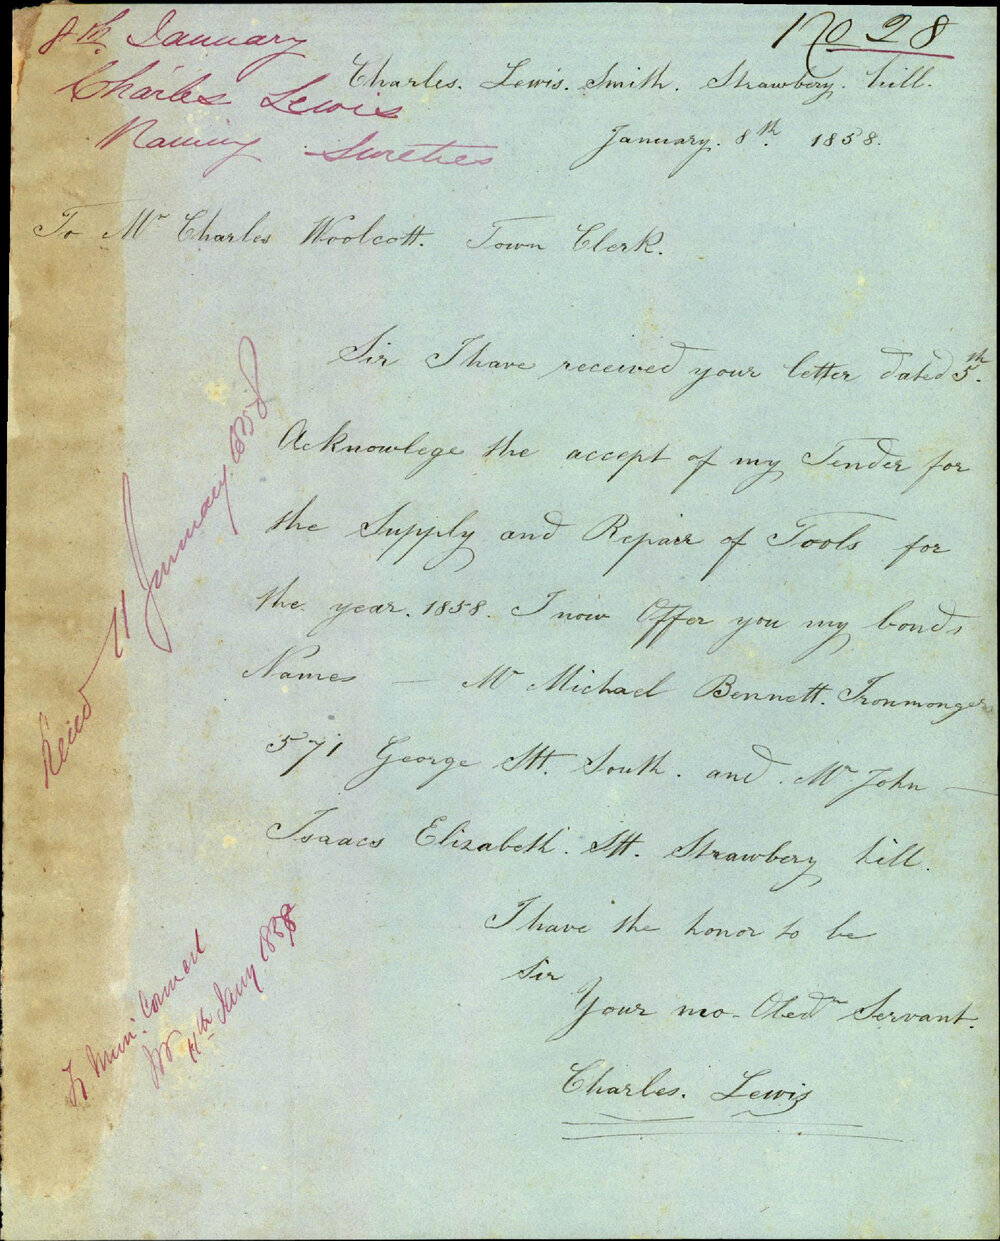 No 28
8th January
Charles Lewis
Naming Sureties
Charles. Lewis. Smith. Strawbery. hill.
January. 8th. 1858.
To Mr Charles Woolcott. Town Clerk.
Sir I have received your letter dated 5th.
Acknowlege the accept of my Tender for
the Supply and Repair of Tools for
the year. 1858. I now Offer you my bonds
Names — Mr Michael Bennett. Ironmonger
571 George Stt. South. and. Mr John —
Isaacs Elizabeth. Stt. Strawbery hill
I have the honor to be
Sir
Your mo- Obedn Servant.
Charles. Lewis
Recd 11 January 1858
Mun. Council
11th Jany 1858